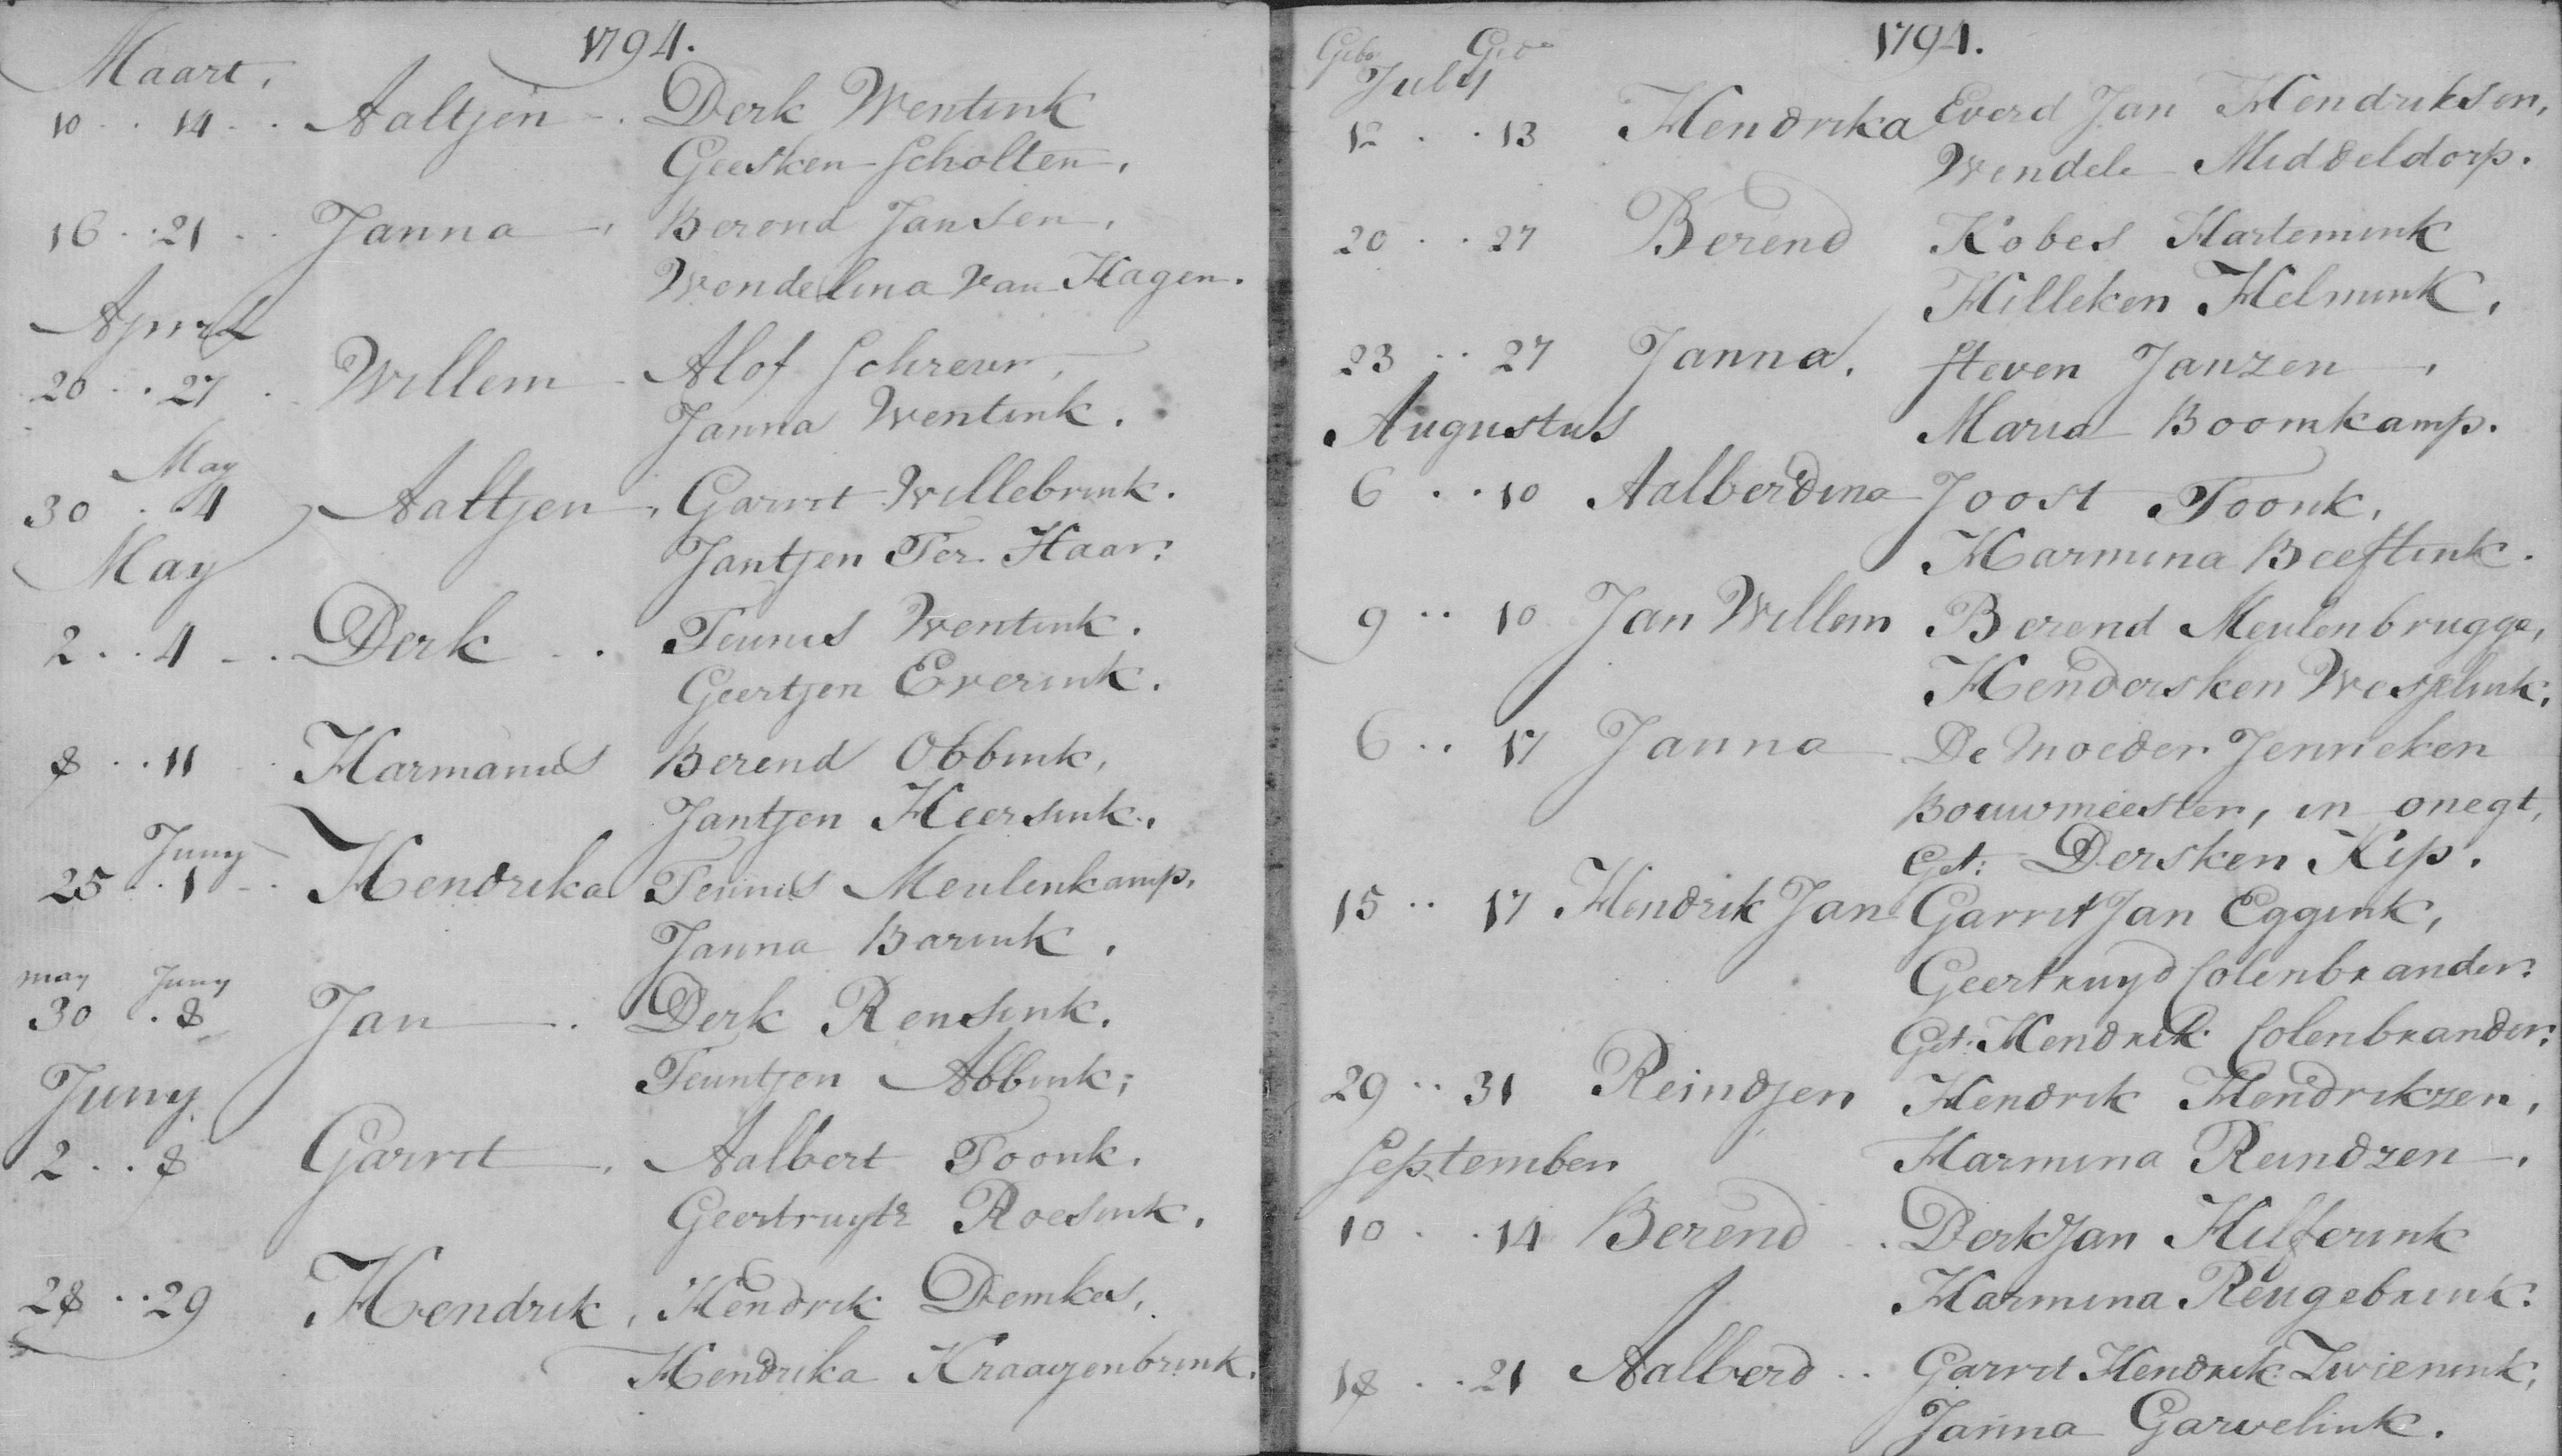 1794.
Maart,
10 .. 14 .. Aaltjen .. Derk Wentink
Geesken Scholten,
16 .. 21 .. Janna, Berend Jansen,
Wendelina Van Hagen.
April
20 .. 27 . Willem Alof Schreur,
Janna Wentink.
May
30 . 4 Aaltjen, Garrit Willebrink.
Jantjen Ter Haar:
May
2 .. 4 .. Derk .. Teunis Wentink.
Geertjen Everink.
8 .. 11 .. Harmanus Berend Obbink,
Jantjen Heersink.,
Juny
25 .. 1 .. Hendrika Teunis Meulenkamp,
Janna Barink,
may Juny
30 . 8 Jan . Derk Rensink.
Teuntjen Abbink;
Juny
2 .. 8 Garrit, Aalbert Toonk.
Geertruyt Roesink.
28 .. 29 Hendrik, Hendrik Demkes,
Hendrika Kraayenbrink.
1794.
Geb. Ged.
July
12 .. 13 Hendrika Everd Jan Hendriksen,
Wendele Middeldorp.
20 .. 27 Berend Kobes Hartemink
Hilleken Helmink,
23 .. 27 Janna. Steven Janzen,
Augustus Maria Boomkamp.
6 .. 10 Aalberdina Joost Toonk,
Harmina Beeftink.
9 .. 10 Jan Willem Berend Meulenbrugge,
Hendersken Wesselink;
6 .. 17 Janna De Moeder Jenneken
Bouwmeester, in onegt,
Get: Dersken Kip.
15 .. 17 Hendrik Jan Garrit Jan Eggink,
Geertruyd Colenbrander:
Get: Hendrik Colenbrander:
29 .. 31 Reindjen Hendrik Hendrikzen,
September Harmina Reindzen.
10 .. 14 Berend .. Derk Jan Hilferink
Harmina Reugebrink:
18 .. 21 Aalberd .. Garrit Hendrik Zwienink;
Janna Garvelink.